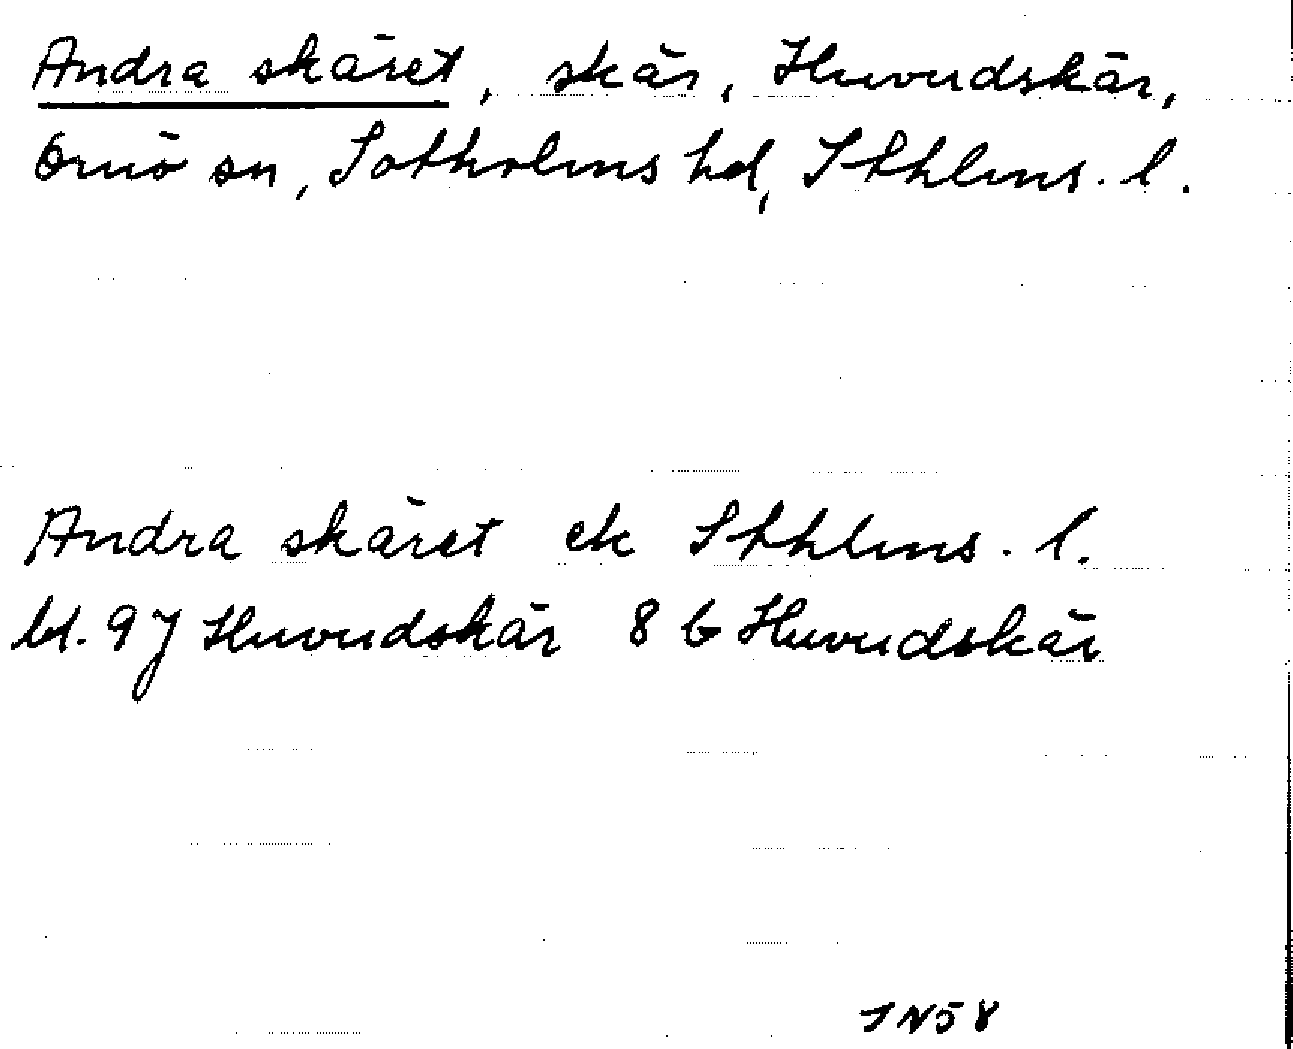 Andra skäret, skär, Huvudskär,
Ornö sn, Sotholms hd, Sthlms. l.
Andra skäret ek Sthlms. l.
bl. 9J Huvudskär 8 b Huvudskär